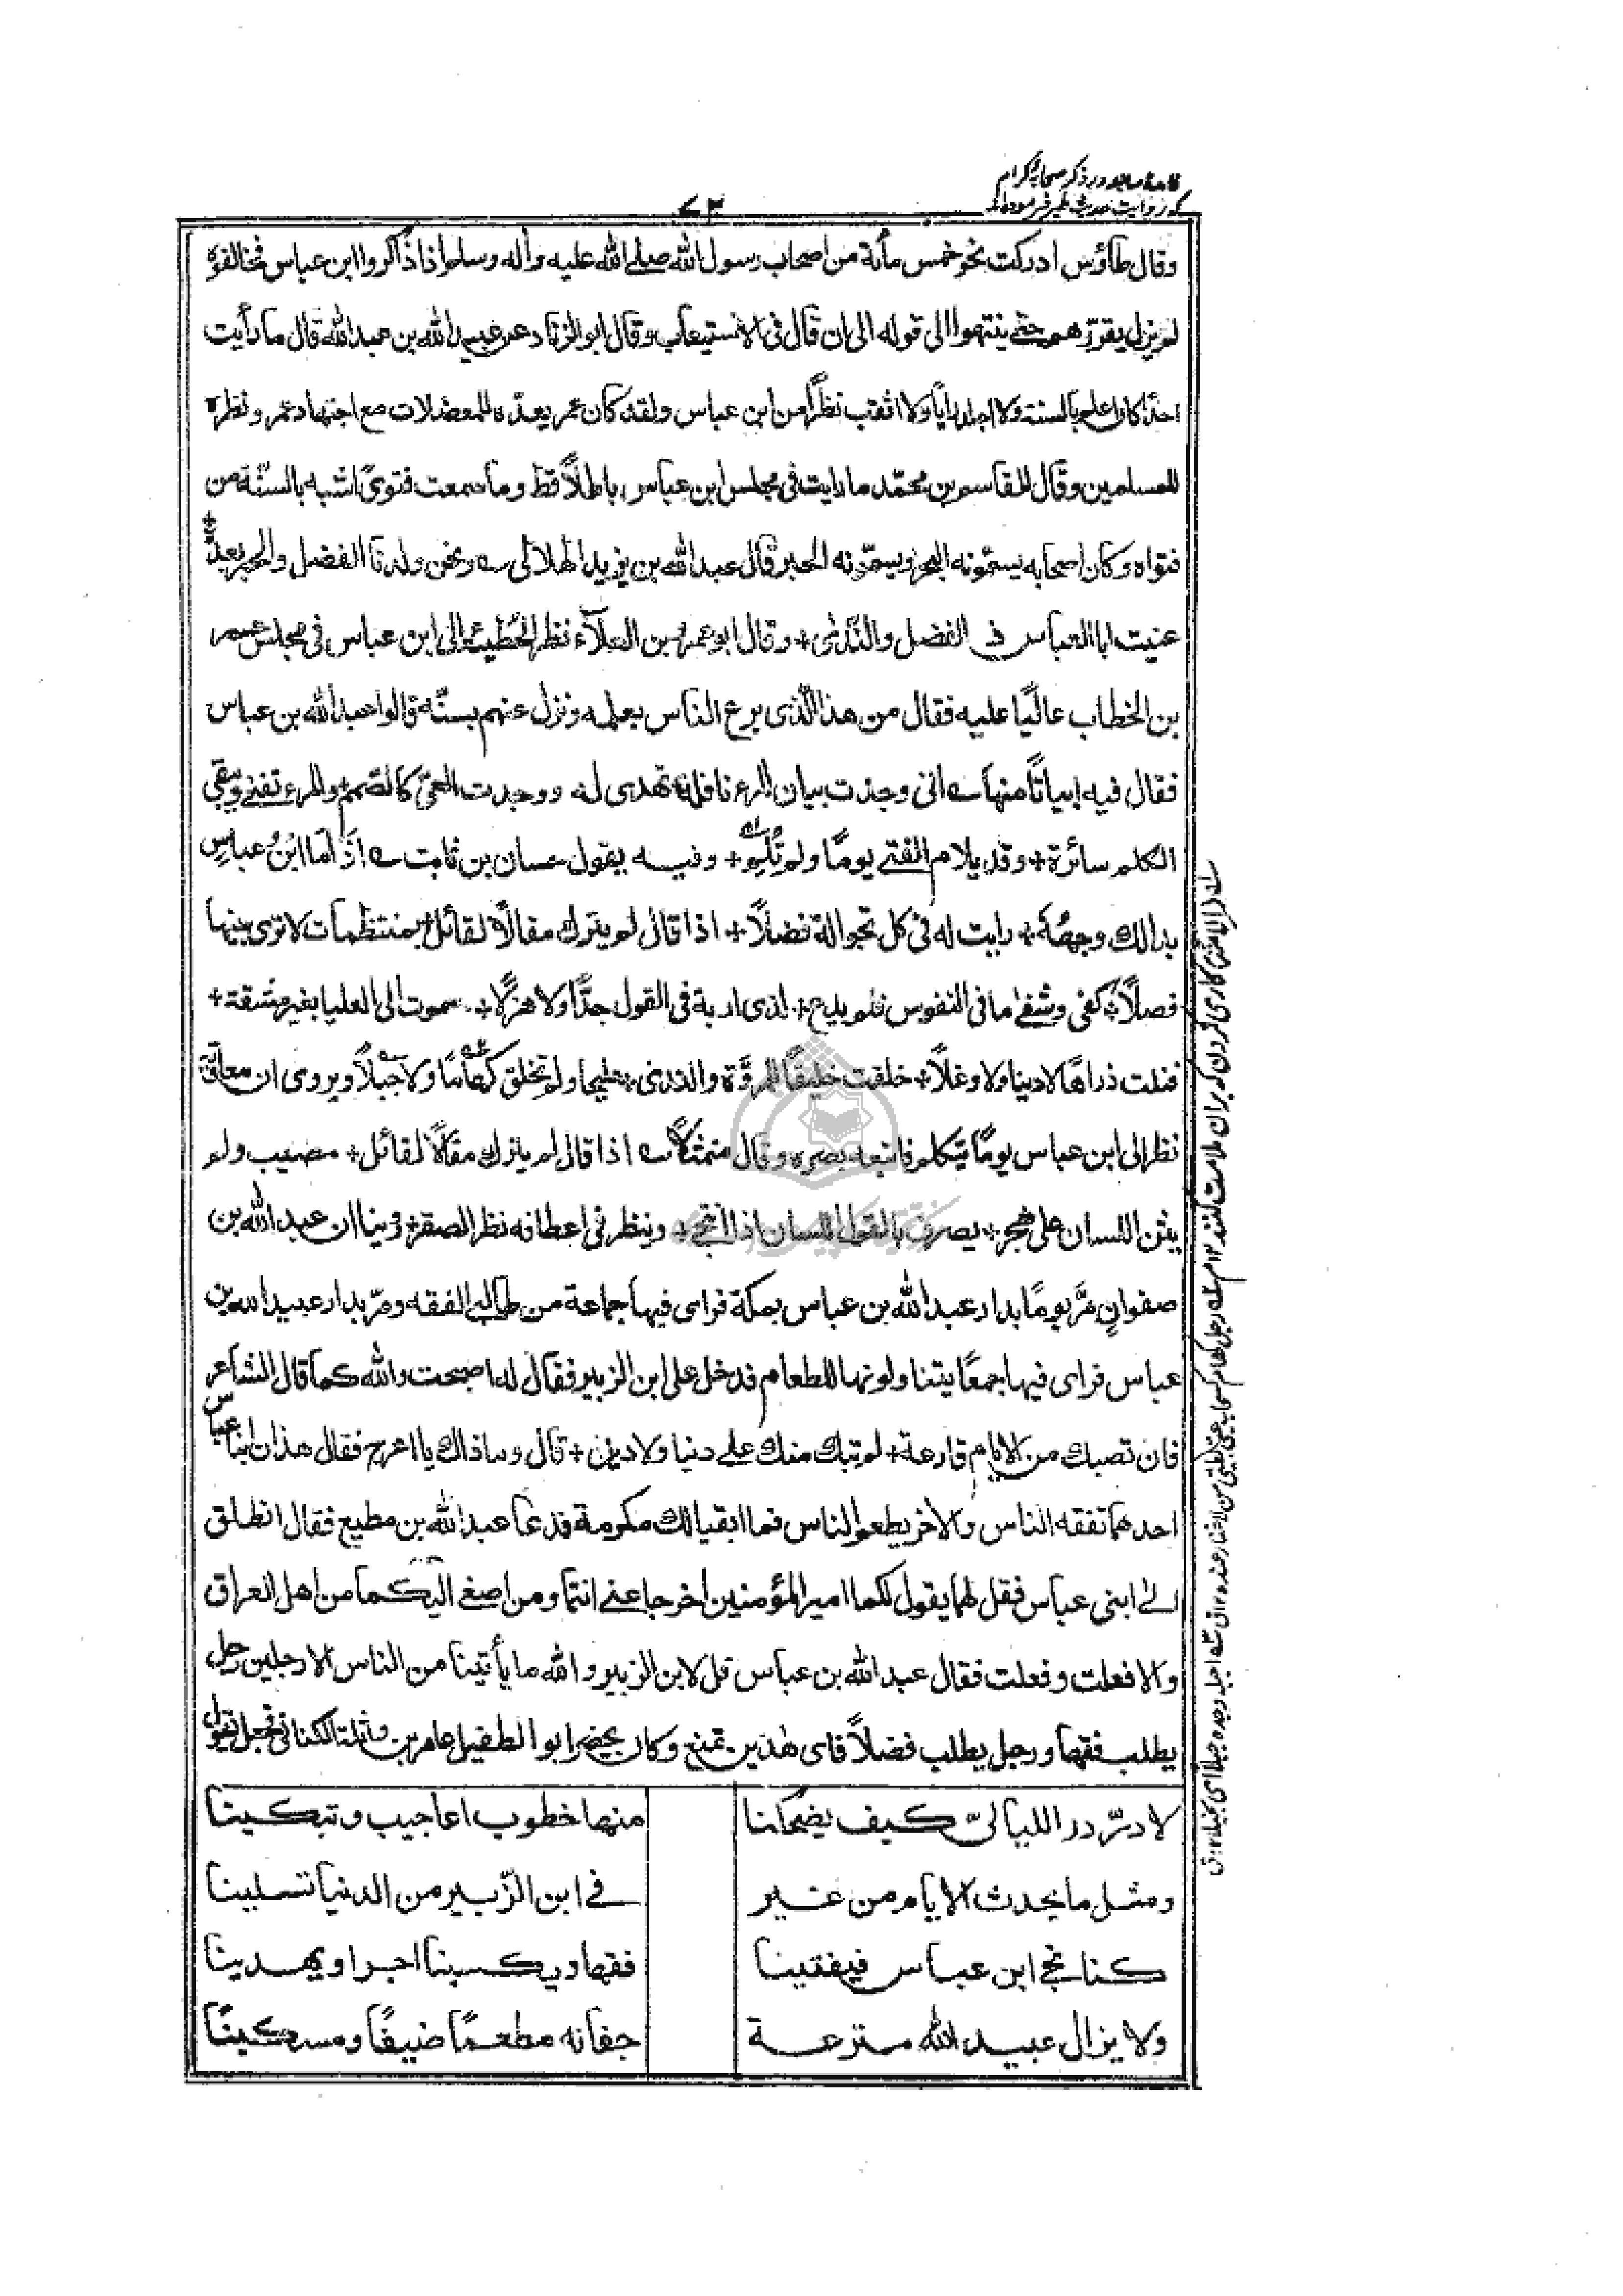 در ذكر صحابۀ كرام
كه روايت حديث غدير فرموده‌اند
٧٣
وقال طاؤس ادركت نحو خمس مأئة من اصحاب رسول الله صلے الله عليه وآله وسلم اذا ذاكروا ابن عباس فخالفوه
لم يزل يقررهم حتے ينتهوا الى قوله الى ان قال فى الاستيعاب وقال ابو الزناد عن عبيد الله بن عبد الله قال ما رأيت
احدًا كان اعلم بالسنة ولا اجلد رايًا ولا اثقب نظرًا من ابن عباس ولقد كان عمر يعدّه للمعضلات مع اجتهاد عمر ونظره
للمسلمين وقال القاسم بن محمّد ما رايت فى مجلس ابن عباس باطلًا قط وما سمعت فتوىً اشبه بالسنّة من
فتواه وكان اصحابه يسمّونه البحر ويسمّونه الحبر قال عبد الله بن يزيد الهلالى ؎ ونحن ولدنا الفضل والحبر بعدهٗ +
عنيت ابا العباس ذى الفضل والنّدىٰ + وقال ابو عمرو بن العلآء نظر الحُطيئة الى ابن عباس فى مجلس عمر
بن الخطاب عاليًا عليه فقال من هذا الّذى برع الناس بعلمه ونزل عنهم بسنّه قالوا عبد الله بن عباس
فقال فيه ابياتًا منها ؎ انى وجدت بيان المرء نافلة تهدى له ووجدت العىّ كالصّمم + والمرء تفنے ويبقى
الكلم سائرة + وقد يلام الفتے يومًا ولم يُلِم + وفيه يقول حسان بن ثابت ؎ اذا ما ابنُ عباسٍ
بدا لك وجهُه + رايت له فى كل احواله فضلًا + اذا قال لم يترك مقالًا لقائل + بمنتظمات لا ترى بينها
فصلًا + كفى وشفىٰ ما فى النفوس فلم يدع + لذى اربة فى القول جدًّا ولا هزلًا + سموت الى العليا بغير مشقة +
فنلت ذراها لا دنيا ولا وغلًا + خلقت خليقًا للمروّة والندى + مليحا ولم تخلق كهامًا ولا جبلًا ويروى ان معاوية
نظر الى ابن عباس يومًا يتكلم فاتبعه بصره وقال متمثلًا ؎ اذا قال لم يترك مقالًا لقائل + مصيب ولم
يثن اللسان على هجر + يصرف بالقول اللسان اذا انتحى + وينظر فى اعطافه نظر الصقر وروينا ان عبد الله بن
صفوان مرّ يومًا بدار عبد الله بن عباس بمكة فراى فيها جماعة من طالبى الفقه ومرّ بدار عبيد الله بن
عباس فراى فيها جمعًا يتناولونها للطعام فدخل على ابن الزبير فقال له اصبحت والله كما قال الشاعر
فان تصبك من الايام قارعة + لم نبك منك علے دنيا ولا دين + قال وما ذاك يا اعرج فقال هذان ابنا عباس
احدهما تفقه الناس والاخر يطعم الناس فما ابقيا لك مكرمة فدعا عبد الله بن مطيع فقال انطلق
الےٰ ابنى عباس فقل لهما يقول لكما امير المؤمنين اخرجا عنے انتما ومن اصغى اليكما من اهل العراق
والا فعلت وفعلت فقال عبد الله بن عباس قل لابن الزبير والله ما يأتينا من الناس الا رجلين رجل
يطلب فقها ورجل يطلب فضلًا فاى هٰذين تمنع وكان بحضر ابو الطفيل عامر بن واثلة الكنانى فجعل يقول
لا درّ درّ الليالى كيف يضحكنا منها خطوب اعاجيب وتبكينا
ومثل ما يحدث الايام من غير فى ابن الزّبير من الدنيا تسلينا
كنا نجئ ابن عباس فيفتينا فقها ويكسبنا اجرا ويهدينا
ولا يزال عبيد الله مترعة جفانه مطعمًا ضيفًا ومسكينًا
كارى كردن كه بران ملامت كنند ١٢ م